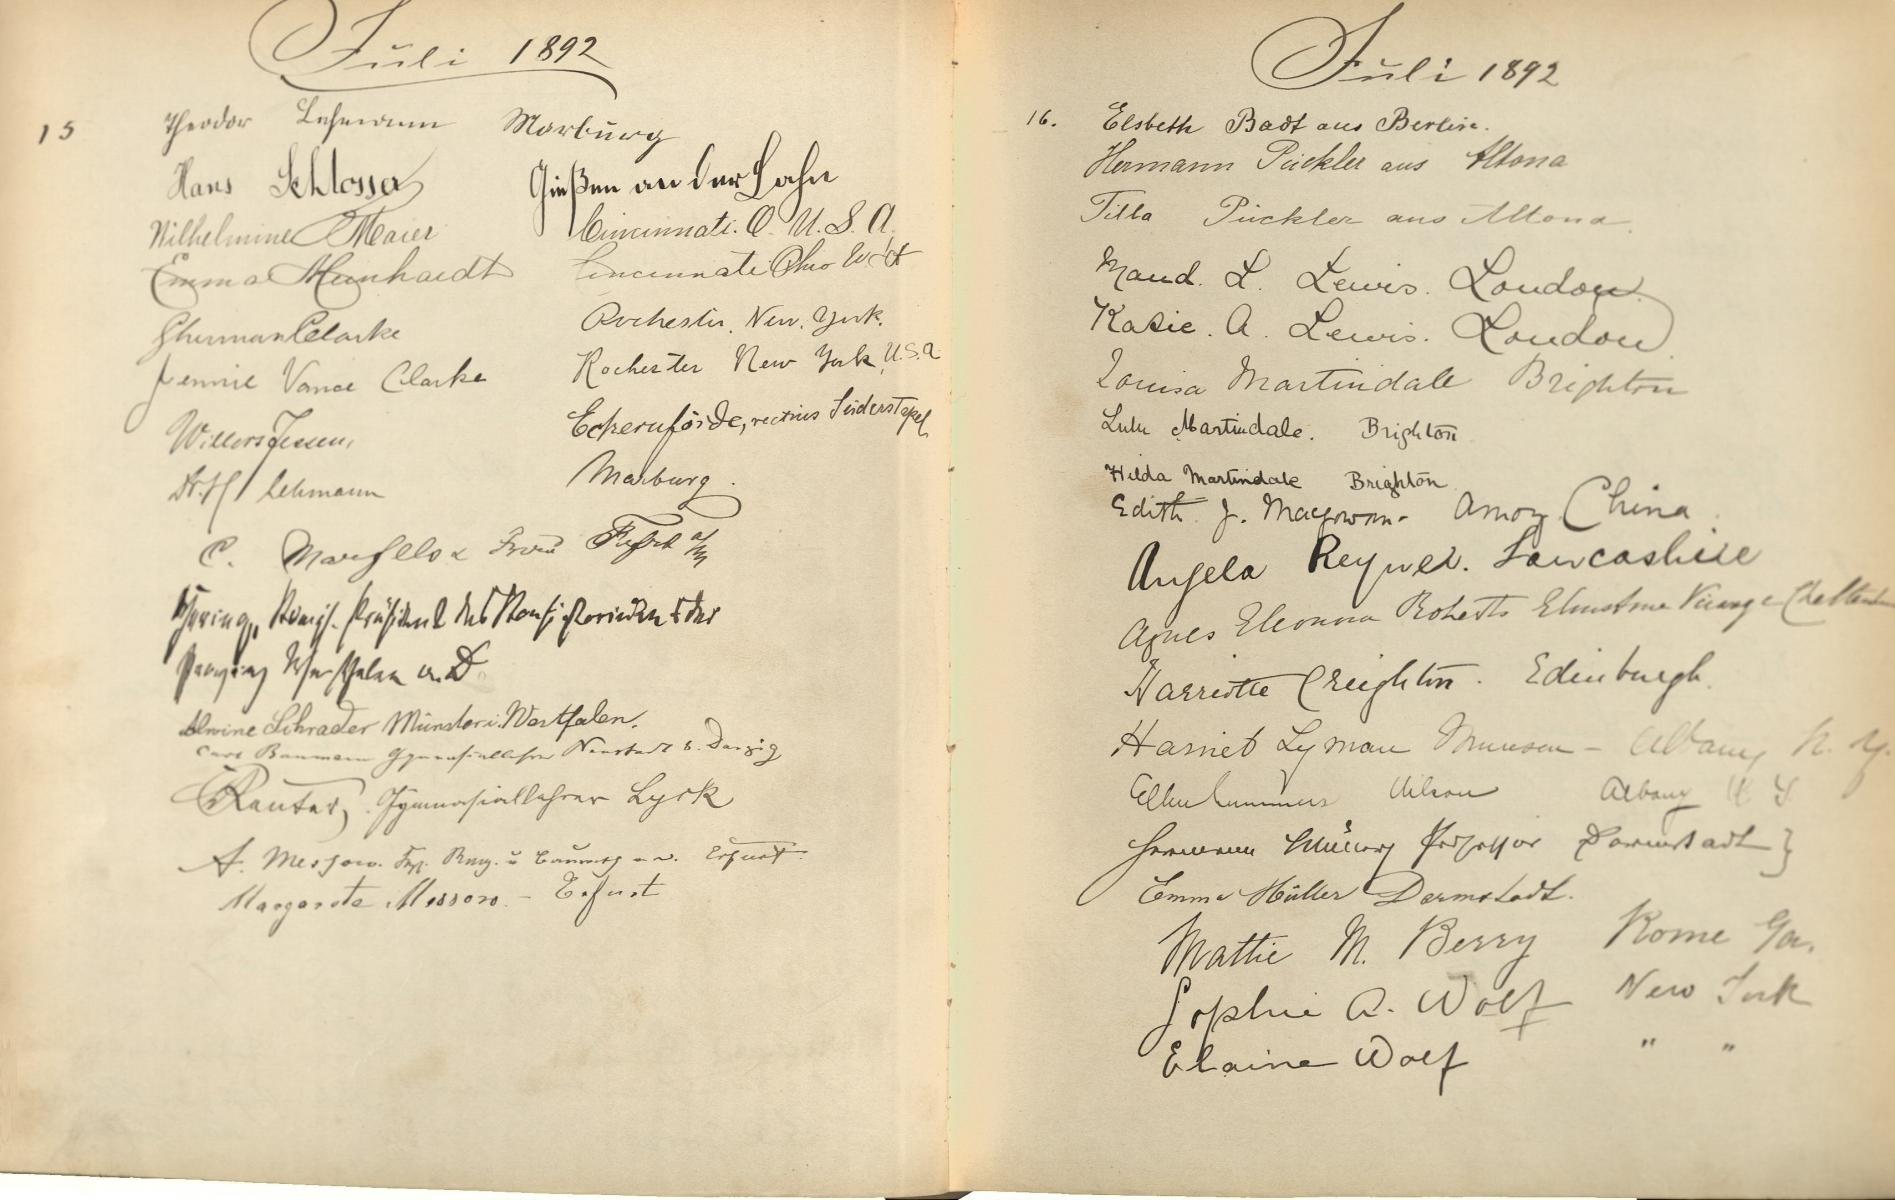 Juli 1892
15 Theodor Lehmann Marburg
Hans Schlosser Gießen an der Lahn
Wilhelmine Maier Cincinnati. O. U. S. A.
Emma Meinhardt Cincinnati Ohio
Sherman Clarke Rochester. New. York.
Jennie Vance Clarke Rochester New York, U.S.A
Willers Jessen, Eckernförde, rectius Süderstapel
Dr. H Lehmann Marburg.
C. Frau
Königl. Präsident des Konsistoriums der
Provinz Westfalen a. D.
Alwine Schrader Münster i. Westfalen.
Carl Baumann Gymnasiallehrer Neustadt b. Danzig
Rauter, Gymnasiallehrer Lyck
A. Messow. Erfurt.
Margarete Messow. - Erfurt
Juli 1892
16. Elsbeth Badt aus Berlin.
Hermann Pückler aus Altona
Tilla Pückler aus Altona.
Maud. L. Lewis. London.
Katie. A. Lewis. London.
Louisa Martindale Brighton
Lulu Martindale. Brighton
Hilda Martindale Brighton
Edith. J. Macgowan - Amoy China.
Angela Reyner. Lancashire
Agnes Eleonora Roberts Elmstone Vicarage Cheltenham
Harriotte Creighton. Edinburgh.
Harriet Lyman Munson - Albany N. Y.
Ellen Wilson Albany N Y
Hermann Müller Professor Darmstadt }
Emma Müller Darmstadt.
Mattie M. Berry Rome Ga.
Sophie A. Wolf New York
Elaine Wolf " "